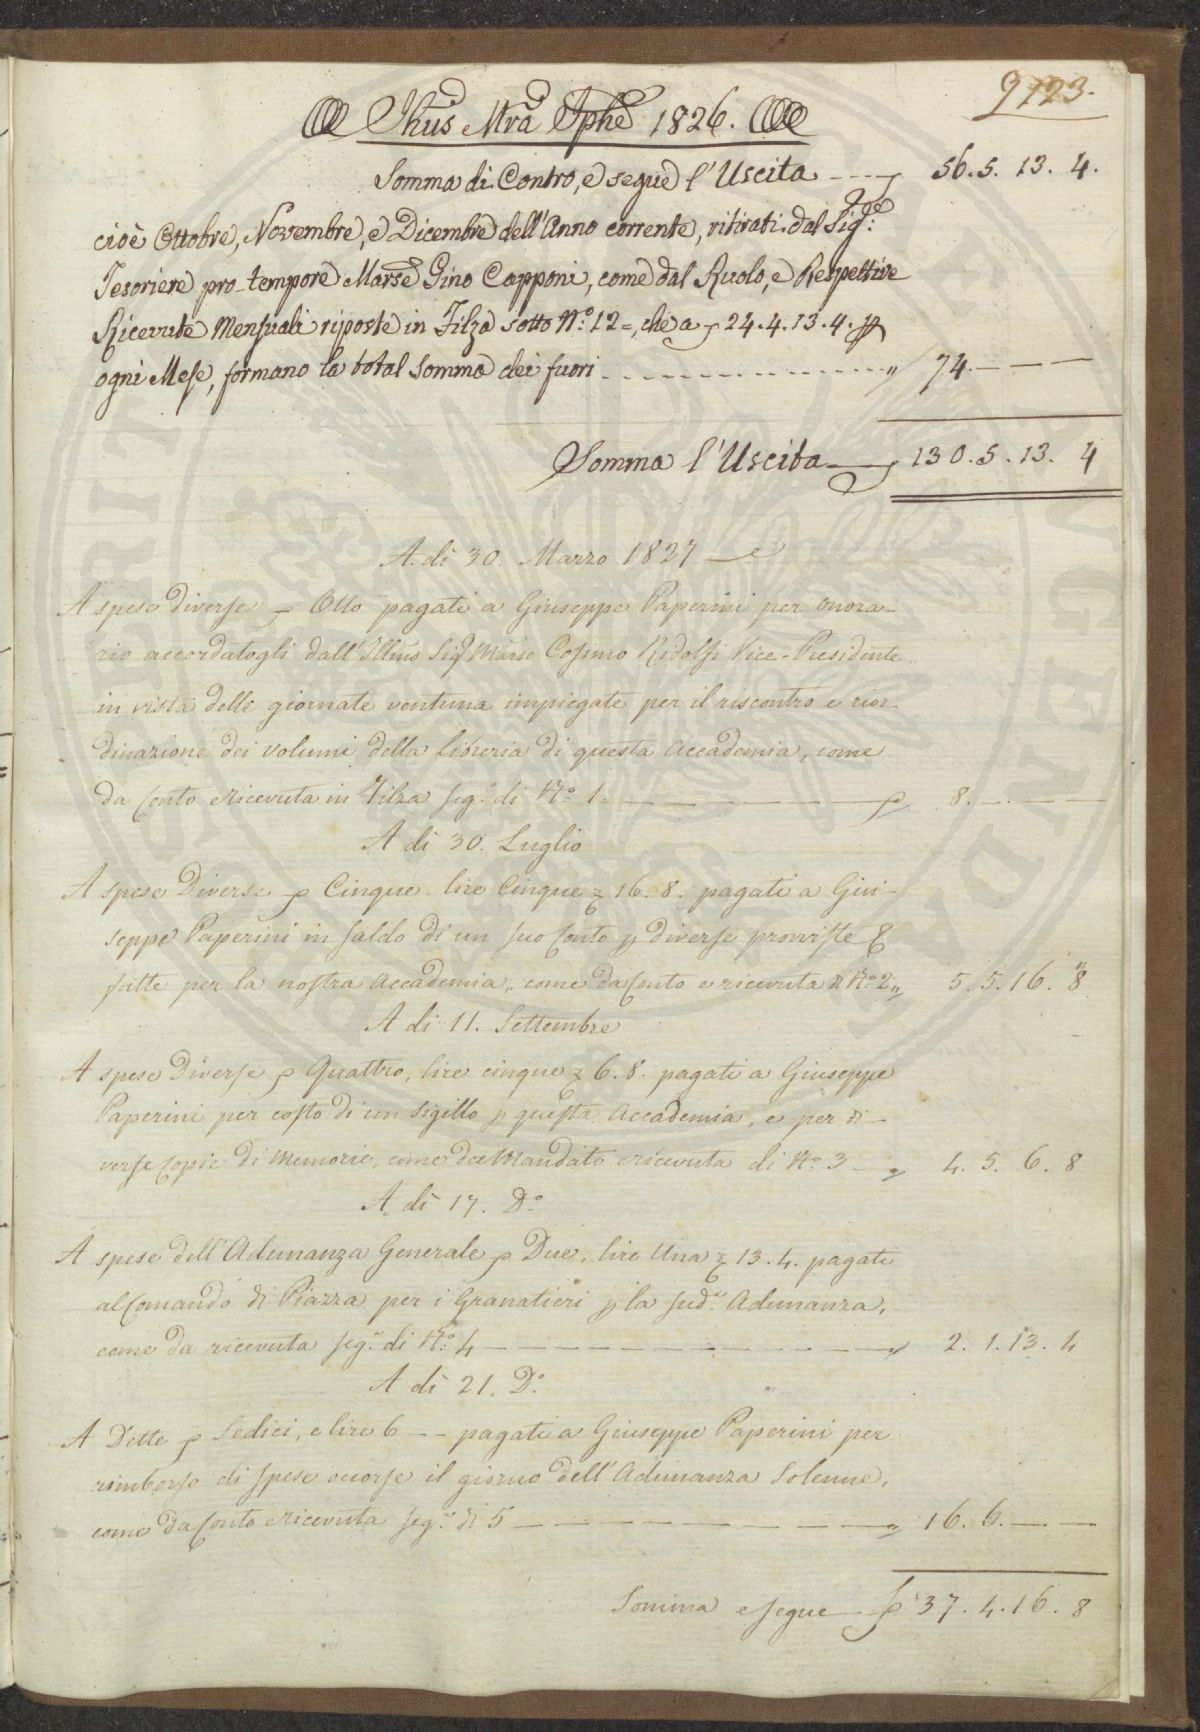 9 123.
Jhus Mrã Jphe 1826.
Somma di Contro, e segue l'Uscita 56. 5. 13. 4.
cioè Ottobre, Novembre, e Dicembre dell'Anno corrente, ritirati dal Sig.e
Tesoriere pro-tempore Marse Gino Capponi, come dal Ruolo, e Respettive
Ricevute Mensuali riposte in Filza sotto N.° 12=, che a 24. 4. 13. 4. p
ogni Mese, formano la total somma dei fuori 74. — —
Somma l'Uscita 130. 5. 13. 4
A dì 30. Marzo 1827
A spese diverse Otto pagati a Giuseppe Paperini per onora-
rio accordatogli dall'Illmo Sig Marse Cosimo Ridolfi Vice-Presidente
in vista delle giornate ventuna impiegate per il riscontro e rior-
dinazione dei volumi della libreria di questa Accademia, come
da Conto e ricevuta in Filza seg.° di N.° 1. 8. — —
A dì 30. Luglio
A spese Diverse Cinque lire Cinque 16. 8. pagati a Giu-
seppe Paperini in saldo di un suo Conto p diverse provviste
fatte per la nostra Accademia, come da Conto e ricevuta N.° 2 5. 5. 16. 8
A dì 11. Settembre
A spese Diverse Quattro, lire cinque 6. 8. pagati a Giuseppe
Paperini per costo di un sigillo p questa Accademia, e per di-
verse copie di Memorie, come da Mandato e ricevuta di N.° 3 4. 5. 6. 8
A dì 17. D.°
A spese dell'Adunanza Generale Due, lire Una 13. 4. pagati
al Comando di Piazza per i Granatieri p la sud.a Adunanza,
come da ricevuta seg.° di N.° 4 2. 1. 13. 4
A dì 21. D.°
A Dette Sedici, e lire 6 — — pagati a Giuseppe Paperini per
rimborso di spese occorse il giorno dell'Adunanza Solenne,
come da Conto e ricevuta seg.° di 5 16. 6. — —
Somma e segue 37. 4. 16. 8